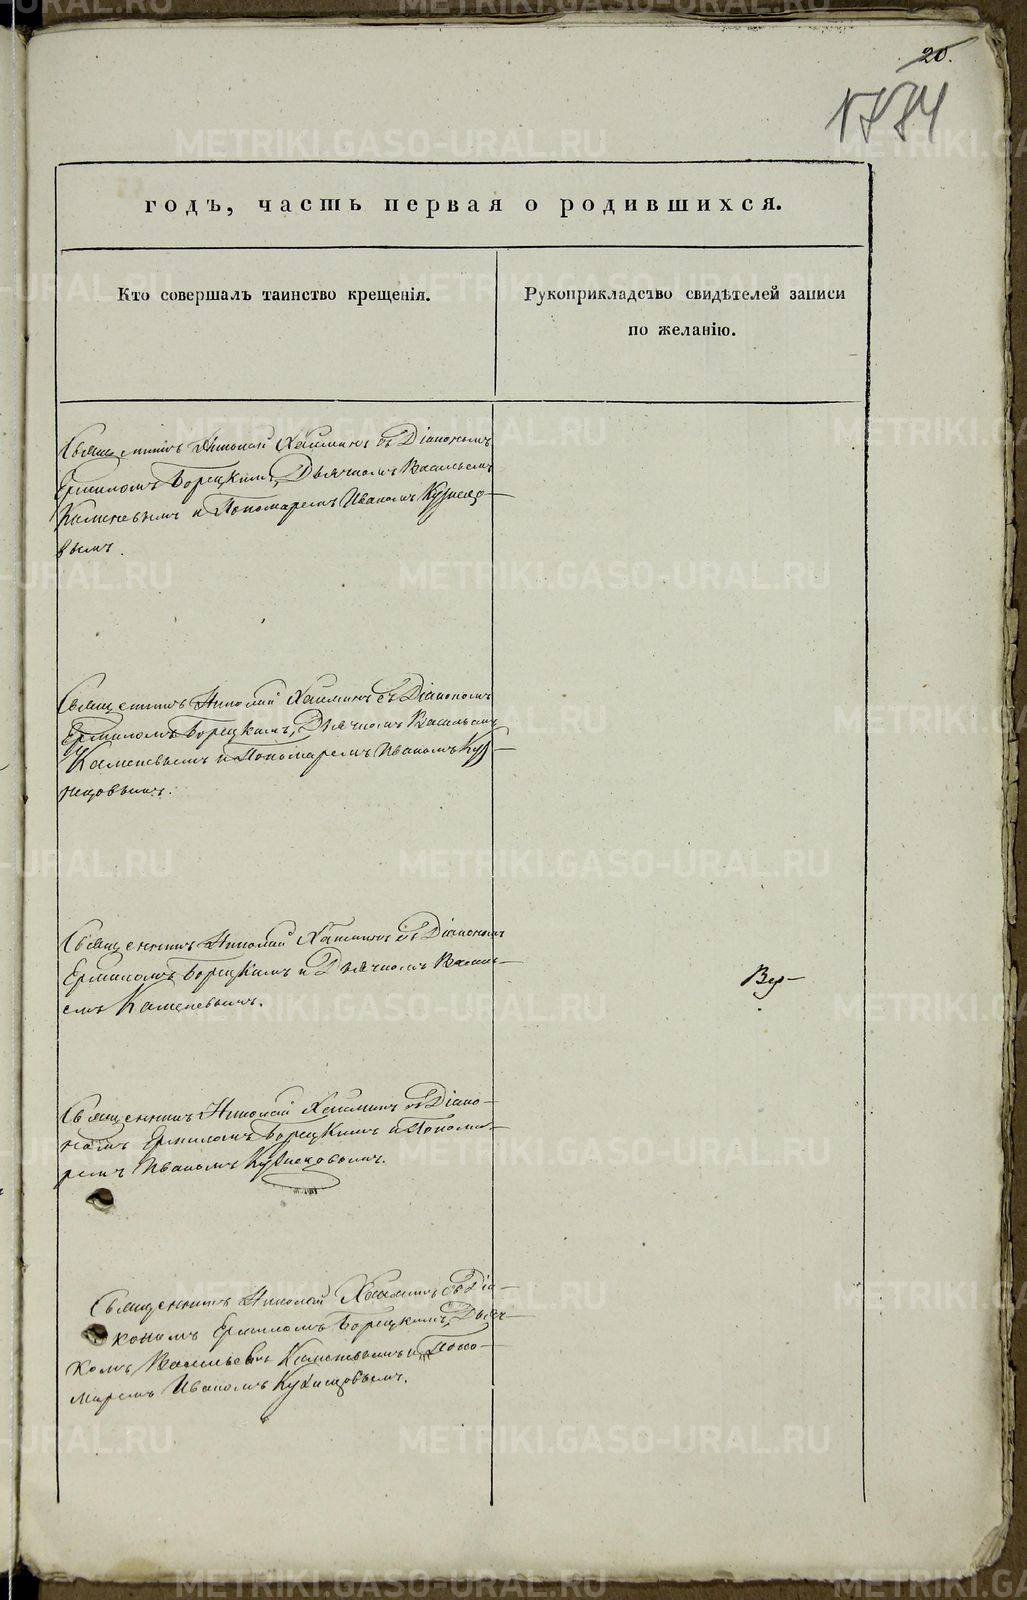 20.
1774
годъ, часть первая о родившихся.
Кто совершалъ таинство крещенія.
Рукоприкладство свидѣтелей записи
по желанію.
Священникъ Николай Хлынинъ съ Діакономъ
Ермиломъ Борецкимъ, Дьячкомъ Васильемъ
Каменевымъ и Пономаремъ Иваномъ Кузнецо-
вымъ.
Священникъ Николай съ Діакономъ
Ермиломъ Борецкимъ, Дьячкомъ Васильемъ
Каменевымъ и Пономаремъ Иваномъ Куз-
нецовымъ.
Священникъ Николай съ Діакономъ
Ермиломъ Борецкимъ и Дьячкомъ Василь-
емъ Каменевымъ.
Священникъ Николай съ Діако-
номъ Ермиломъ Борецкимъ и Понома-
ремъ Иваномъ Кузнецовымъ.
Священникъ Николай съ Діа-
кономъ Ермиломъ Борецкимъ, Дьяч-
комъ Васильемъ Каменевымъ и Поно-
маремъ Иваномъ Кузнецовымъ.
METRIKI.GASO-URAL.RU